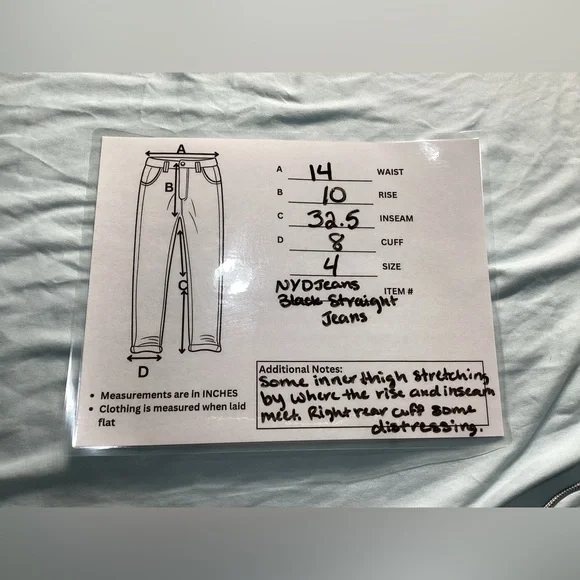 A
B
C
D
A 14 WAIST
B 10 RISE
C 32.5 INSEAM
D 8 CUFF
4 SIZE
NYDJeans ITEM #
Black Straight
Jeans
• Measurements are in INCHES
• Clothing is measured when laid
flat
Additional Notes:
Some inner thigh stretching
by where the rise and inseam
meet. Right rear cuff some
distressing.